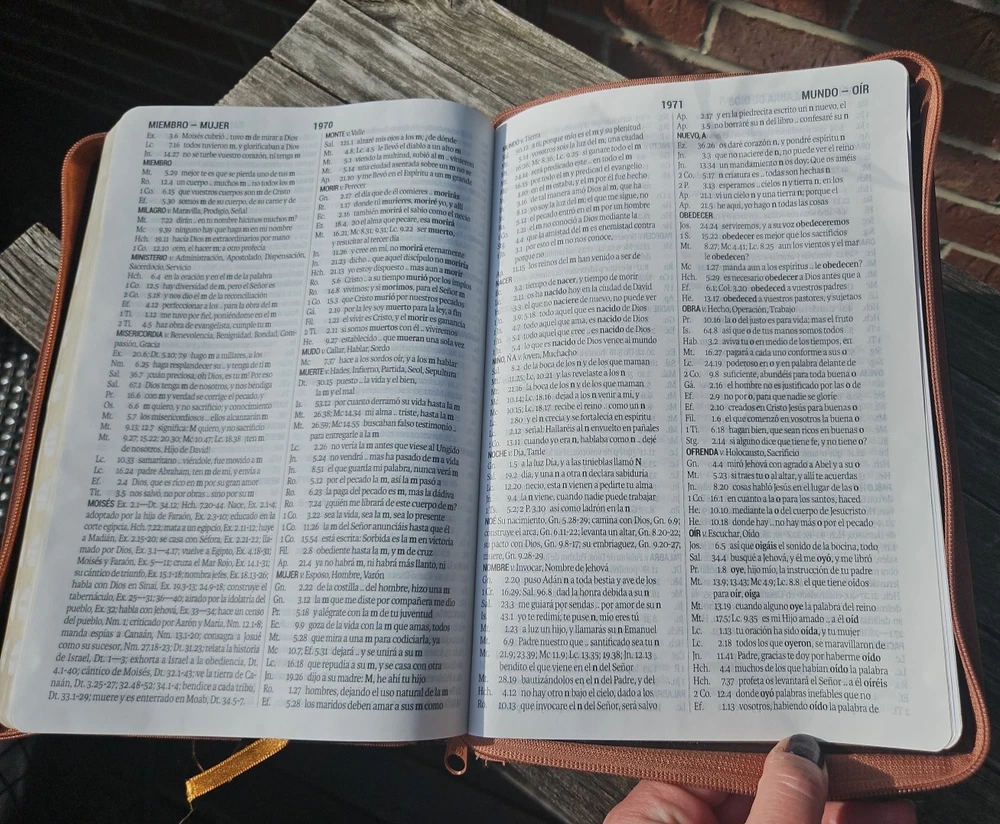 MIEMBRO – MUJER
1970
Éx. 3.6 Moisés cubrió .. tuvo m de mirar a Dios
Lc. 7.16 todos tuvieron m, y glorificaban a Dios
Jn. 14.27 no se turbe vuestro corazón, ni tenga m
MIEMBRO
Mt. 5.29 mejor te es que se pierda uno de tus m
Ro. 12.4 un cuerpo .. muchos m .. no todos los m
1 Co. 6.15 que vuestros cuerpos son m de Cristo
Ef. 5.30 somos m de su cuerpo, de su carne y de
MILAGRO v. Maravilla, Prodigio, Señal
Mt. 7.22 dirán .. en tu nombre hicimos muchos m?
Mc. 9.39 ninguno hay que haga m en mi nombre
Hch. 19.11 hacía Dios m extraordinarios por mano
1 Co. 12.10 otro, el hacer m; a otro profecía
MINISTERIO v. Administración, Apostolado, Dispensación,
Sacerdocio, Servicio
Hch. 6.4 en la oración y en el m de la palabra
1 Co. 12.5 hay diversidad de m, pero el Señor es
2 Co. 5.18 y nos dio el m de la reconciliación
Ef. 4.12 perfeccionar a los .. para la obra del m
1 Ti. 1.12 me tuvo por fiel, poniéndome en el m
2 Ti. 4.5 haz obra de evangelista, cumple tu m
MISERICORDIA v. Benevolencia, Benignidad, Bondad, Com-
pasión, Gracia
Éx. 20.6; Dt. 5.10; 7.9 hago m a millares, a los
Nm. 6.25 haga resplandecer su .. y tenga de ti m
Sal. 36.7 ¡cuán preciosa, oh Dios, es tu m! Por eso
Sal. 67.1 Dios tenga m de nosotros, y nos bendiga
Pr. 16.6 con m y verdad se corrige el pecado, y
Os. 6.6 m quiero, y no sacrificio; y conocimiento
Mt. 5.7 los misericordiosos .. ellos alcanzarán m
Mt. 9.13; 12.7 significa: M quiero, y no sacrificio
Mt. 9.27; 15.22; 20.30; Mc. 10.47; Lc. 18.38 ¡ten m
de nosotros, Hijo de David!
Lc. 10.33 samaritano .. viéndole, fue movido a m
Lc. 16.24 padre Abraham, ten m de mí, y envía a
Ef. 2.4 Dios, que es rico en m por su gran amor
Tit. 3.5 nos salvó, no por obras .. sino por su m
MOISÉS Éx. 2.1—Dt. 34.12; Hch. 7.20-44. Nace, Éx. 2.1-4;
adoptado por la hija de Faraón, Éx. 2.3-10; educado en la
corte egipcia, Hch. 7.22; mata a un egipcio, Éx. 2.11-12; huye
a Madián, Éx. 2.15-20; se casa con Séfora, Éx. 2.21-22; lla-
mado por Dios, Éx. 3.1—4.17; vuelve a Egipto, Éx. 4.18-31;
Moisés y Faraón, Éx. 5—11; cruza el Mar Rojo, Éx. 14.1-31;
su cántico de triunfo, Éx. 15.1-18; nombra jefes, Éx. 18.13-26;
habla con Dios en Sinaí, Éx. 19.3-13; 24.9-18; construye el
tabernáculo, Éx. 25—31; 36—40; airado por la idolatría del
pueblo, Éx. 32; habla con Jehová, Éx. 33—34; hace un censo
del pueblo, Nm. 1; criticado por Aarón y María, Nm. 12.1-8;
manda espías a Canaán, Nm. 13.1-20; consagra a Josué
como su sucesor, Nm. 27.18-23; Dt. 31.23; relata la historia
de Israel, Dt. 1—3; exhorta a Israel a la obediencia, Dt.
4.1-40; cántico de Moisés, Dt. 32.1-43; ve la tierra de Ca-
naán, Dt. 3.25-27; 32.48-52; 34.1-4; bendice a cada tribu,
Dt. 33.1-29; muere y es enterrado en Moab, Dt. 34.5-7.
MONTE v. Valle
Sal. 121.1 alzaré mis ojos a los m; ¿de dónde
Mt. 4.8; Lc. 4.5 le llevó el diablo a un alto m
Mt. 5.1 viendo la multitud, subió al m
Mt. 5.14 una ciudad asentada sobre un m no se
Ap. 21.10 y me llevó en el Espíritu a un m grande
MORIR v. Perecer
Gn. 2.17 el día que de él comieres .. morirás
Rt. 1.17 donde tú murieres, moriré yo, y allí
Ec. 2.16 también morirá el sabio como el necio
Ez. 18.4, 20 el alma que pecare, esa morirá
Mt. 16.21; Mc. 8.31; 9.31; Lc. 9.22 ser muerto,
y resucitar al tercer día
Jn. 11.26 y cree en mí, no morirá eternamente
Jn. 21.23 dicho .. que aquel discípulo no moriría
Hch. 21.13 yo estoy dispuesto .. mas aun a morir
Ro. 5.6 Cristo .. a su tiempo murió por los impíos
Ro. 14.8 vivimos; y si morimos, para el Señor m
1 Co. 15.3 que Cristo murió por nuestros pecados
Gá. 2.19 por la ley soy muerto para la ley, a fin
Fil. 1.21 el vivir es Cristo, y el morir es ganancia
2 Ti. 2.11 si somos muertos con él .. viviremos
He. 9.27 establecido .. que mueran una sola vez
MUDO v. Callar, Hablar, Sordo
Mc. 7.37 hace a los sordos oír, y a los m hablar
MUERTE v. Hades, Infierno, Partida, Seol, Sepultura
Dt. 30.15 puesto .. la vida y el bien,
la m y el mal
Is. 53.12 por cuanto derramó su vida hasta la m
Mt. 26.38; Mc. 14.34 mi alma .. triste, hasta la m
Mt. 26.59; Mc. 14.55 buscaban falso testimonio ..
para entregarle a la m
Lc. 2.26 no vería la m antes que viese al Ungido
Jn. 5.24 no vendrá .. mas ha pasado de m a vida
Jn. 8.51 el que guarda mi palabra, nunca verá m
Ro. 5.12 por el pecado la m, así la m pasó a
Ro. 6.23 la paga del pecado es m, mas la dádiva
Ro. 7.24 ¿quién me librará de este cuerpo de m?
1 Co. 3.22 sea la vida, sea la m, sea lo presente
1 Co. 11.26 la m del Señor anunciáis hasta que él
1 Co. 15.54 está escrita: Sorbida es la m en victoria
Fil. 2.8 obediente hasta la m, y m de cruz
Ap. 21.4 ya no habrá m, ni habrá más llanto, ni
MUJER v. Esposo, Hombre, Varón
Gn. 2.22 de la costilla .. del hombre, hizo una m
Gn. 3.12 la m que me diste por compañera me dio
Pr. 5.18 y alégrate con la m de tu juventud
Ec. 9.9 goza de la vida con la m que amas, todos
Mt. 5.28 que mira a una m para codiciarla, ya
Mc. 10.7; Ef. 5.31 dejará .. y se unirá a su m
Lc. 16.18 que repudia a su m, y se casa con otra
Jn. 19.26 dijo a su madre: M, he ahí tu hijo
Ro. 1.27 hombres, dejando el uso natural de la m
Ef. 5.28 los maridos deben amar a sus m como
1971
MUNDO – OÍR
MUNDO v. Tierra
porque mío es el m y su plenitud
5.14 vosotros sois la luz del m; una ciudad
16.26; Mc. 8.36; Lc. 9.25 si ganare todo el m
será predicado este .. en todo el m
id por todo el m y predicad el evangelio
en el m estaba, y el m por él fue hecho
3.16 de tal manera amó Dios al m, que ha
8.12 yo soy la luz del m; el que me sigue, no
5.12 el pecado entró en el m por un hombre
1.21 el m no conoció a Dios mediante la
4.4 que la amistad del m es enemistad contra
3.1 por esto el m no nos conoce,
porque no
11.15 los reinos del m han venido a ser de
NACER
3.2 tiempo de nacer, y tiempo de morir
2.11 os ha nacido hoy, en la ciudad de David
3.3 el que no naciere de nuevo, no puede ver
3.9; 5.18 todo aquel que es nacido de Dios
4.7 todo aquel que ama, es nacido de Dios
5.1 todo aquel que cree .. es nacido de Dios
5.4 lo que es nacido de Dios vence al mundo
NIÑO, ÑA v. Joven, Muchacho
8.2 de la boca de los n y de los que maman
11.25; Lc. 10.21 y las revelaste a los n
21.16 de la boca de los n y de los que maman
10.14; Lc. 18.16 dejad a los n venir a mí, y
10.15; Lc. 18.17 reciba el reino .. como un n
1.80 y el n crecía y se fortalecía en espíritu
2.12 señal: Hallaréis al n envuelto en pañales
1 Co. 13.11 cuando yo era n, hablaba como n .. dejé
NOCHE v. Día, Tarde
Gn. 1.5 a la luz Día, y a las tinieblas llamó N
19.2 día, y una n a otra n declara sabiduría
12.20 necio, esta n vienen a pedirte tu alma
9.4 la n viene, cuando nadie puede trabajar
5.2; 2 P. 3.10 así como ladrón en la n
NOÉ Su nacimiento, Gn. 5.28-29; camina con Dios, Gn. 6.9;
construye el arca, Gn. 6.11-22; levanta un altar, Gn. 8.20-22;
su pacto con Dios, Gn. 9.8-17; su embriaguez, Gn. 9.20-27;
muere, Gn. 9.28-29.
NOMBRE v. Invocar, Nombre de Jehová
Gn. 2.20 puso Adán n a toda bestia y ave de los
1 Cr. 16.29; Sal. 96.8 dad la honra debida a su n
Sal. 23.3 me guiará por sendas .. por amor de su n
43.1 yo te redimí; te puse n, mío eres tú
1.23 a luz un hijo, y llamarás su n Emanuel
6.9 Padre nuestro que .. santificado sea tu n
Mt. 21.9; 23.39; Mc. 11.9; Lc. 13.35; 19.38; Jn. 12.13
bendito el que viene en el n del Señor
Mt. 28.19 bautizándolos en el n del Padre, y del
Hch. 4.12 no hay otro n bajo el cielo, dado a los
Ro. 10.13 que invocare el n del Señor, será salvo
Ap. 2.17 y en la piedrecita escrito un n nuevo, el
Ap. 3.5 no borraré su n del libro .. confesaré su n
NUEVO, A
Ez. 36.26 os daré corazón n, y pondré espíritu n
Jn. 3.3 que no naciere de n, no puede ver el reino
Jn. 13.34 un mandamiento n os doy: Que os améis
2 Co. 5.17 n criatura es .. todas son hechas n
2 P. 3.13 esperamos .. cielos n y tierra n, en los
Ap. 21.1 vi un cielo n y una tierra n; porque el
Ap. 21.5 he aquí, yo hago n todas las cosas
OBEDECER
Jos. 24.24 serviremos, y a su voz obedeceremos
1 S. 15.22 obedecer es mejor que los sacrificios
Mt. 8.27; Mc. 4.41; Lc. 8.25 aun los vientos y el mar
le obedecen?
Mc. 1.27 manda aun a los espíritus .. le obedecen?
Hch. 5.29 es necesario obedecer a Dios antes que a
Ef. 6.1; Col. 3.20 obedeced a vuestros padres
He. 13.17 obedeced a vuestros pastores, y sujetaos
OBRA v. Hecho, Operación, Trabajo
Pr. 10.16 la o del justo es para vida; mas el fruto
Is. 64.8 así que o de tus manos somos todos
Hab. 3.2 aviva tu o en medio de los tiempos, en
Mt. 16.27 pagará a cada uno conforme a sus o
Lc. 24.19 poderoso en o y en palabra delante de
2 Co. 9.8 suficiente, abundéis para toda buena o
Gá. 2.16 el hombre no es justificado por las o de
Ef. 2.9 no por o, para que nadie se gloríe
Ef. 2.10 creados en Cristo Jesús para buenas o
Fil. 1.6 el que comenzó en vosotros la buena o
1 Ti. 6.18 hagan bien, que sean ricos en buenas o
Stg. 2.14 si alguno dice que tiene fe, y no tiene o?
OFRENDA v. Holocausto, Sacrificio
Gn. 4.4 miró Jehová con agrado a Abel y a su o
Mt. 5.23 si traes tu o al altar, y allí te acuerdas
Lc. 8.20 cosas habló Jesús en el lugar de las o
1 Co. 16.1 en cuanto a la o para los santos, haced
He. 10.10 mediante la o del cuerpo de Jesucristo
He. 10.18 donde hay .. no hay más o por el pecado
OÍR v. Escuchar, Oído
Jos. 6.5 así que oigáis el sonido de la bocina, todo
Sal. 34.4 busqué a Jehová, y él me oyó, y me libró
Pr. 1.8 oye, hijo mío, la instrucción de tu padre
Mt. 13.9; 13.43; Mc. 4.9; Lc. 8.8 el que tiene oídos
para oír, oiga
Mt. 13.19 cuando alguno oye la palabra del reino
Mt. 17.5; Lc. 9.35 es mi Hijo amado .. a él oíd
Lc. 1.13 tu oración ha sido oída, y tu mujer
Lc. 2.18 todos los que oyeron, se maravillaron de
Jn. 11.41 Padre, gracias te doy por haberme oído
Hch. 4.4 muchos de los que habían oído la palabra
Hch. 7.37 profeta os levantará el Señor .. a él oiréis
2 Co. 12.4 donde oyó palabras inefables que no
Ef. 1.13 vosotros, habiendo oído la palabra de